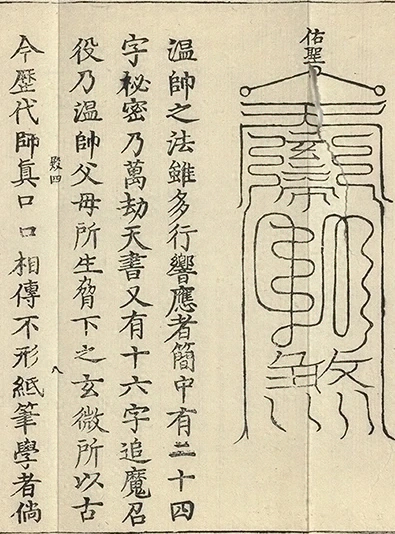 佑聖
玄帝
溫帥之法雖多行響應者簡中有二十四
字祕密乃萬劫天書又有十六字追魔召
役乃溫帥父母所生脅下之玄微所以古
殿四
八
今歷代師真口口相傳不形紙筆學者倘